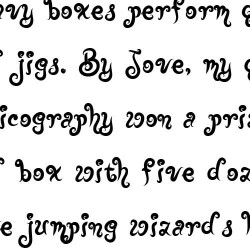 vy boxes perform
jigs. By Jove, my
icography won a pri
box with five doz
e jumping wizard s